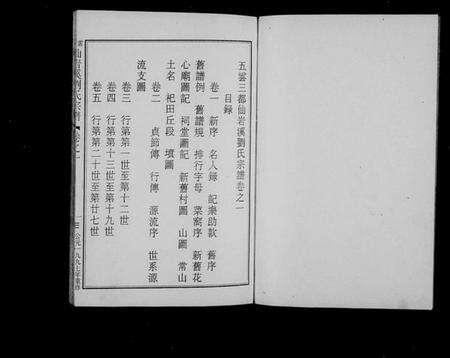 五雲三都仙岩溪劉氏宗譜卷之一
目録
卷一 新序 名人録 記樂助款 舊序
舊譜例 舊譜規 排行字母 菜窩序 新舊花
心廟圖記 祠堂圖記 新舊村圖 山圖 常山
土名 杞田丘段 墳圖
卷二 貞節傳 行傳 源流序 世系源
流支圖
卷三 行第第一世至第十二世
卷四 行第第十三世至第十九世
卷五 行第第二十世至第廿七世
公元一九九七年重修